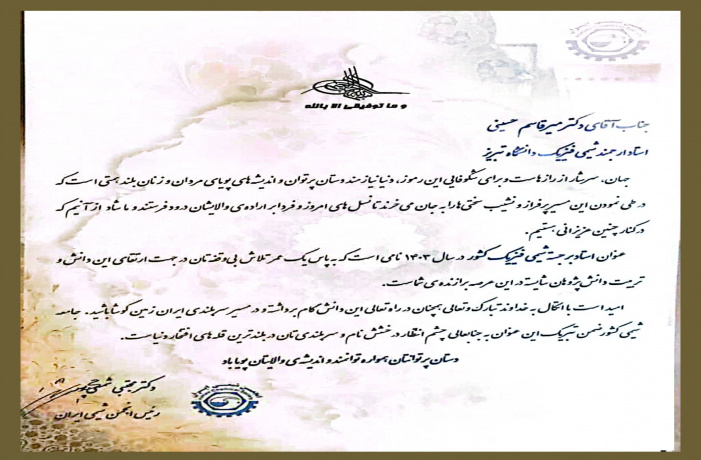 و ما توفیقی الا بالله
جناب آقای دکتر میرقاسم حسینی
استاد ارجمند شیمی فیزیک دانشگاه تبریز
جهان، سرشار از رازهاست و برای شکوفایی این رموز، دنیا نیازمند دستان پرتوان و اندیشه‌های پویای مردان و زنان بلند همتی است که
در طی نمودن این مسیر پرفراز و نشیب سختی‌ها را به جان می‌خرند تا نسل‌های امروز و فردا بر اراده‌ی والایشان درود فرستند و ما شاد از آنیم که
در کنار چنین عزیزانی هستیم.
عنوان استاد برجسته شیمی فیزیک کشور در سال ۱۴۰۳ نامی است که به پاس یک عمر تلاش بی‌وقفه‌تان در جهت ارتقای این دانش و
تربیت دانش‌پژوهان شایسته در این عرصه برازنده‌ی شماست.
امید است با اتکال به خداوند تبارک و تعالی همچنان در راه تعالی این دانش گام برداشته و در مسیر سربلندی ایران زمین کوشا باشید. جامعه
شیمی کشور ضمن تبریک این عنوان به جنابعالی چشم انتظار درخشش نام و سربلندی‌تان در بلندترین قله‌های افتخار و دنیاست.
دستان پرتوانتان همواره توانمند و اندیشه‌ی والایتان پویا باد
دکتر مجتبی شمسی‌پور
رئیس انجمن شیمی ایران